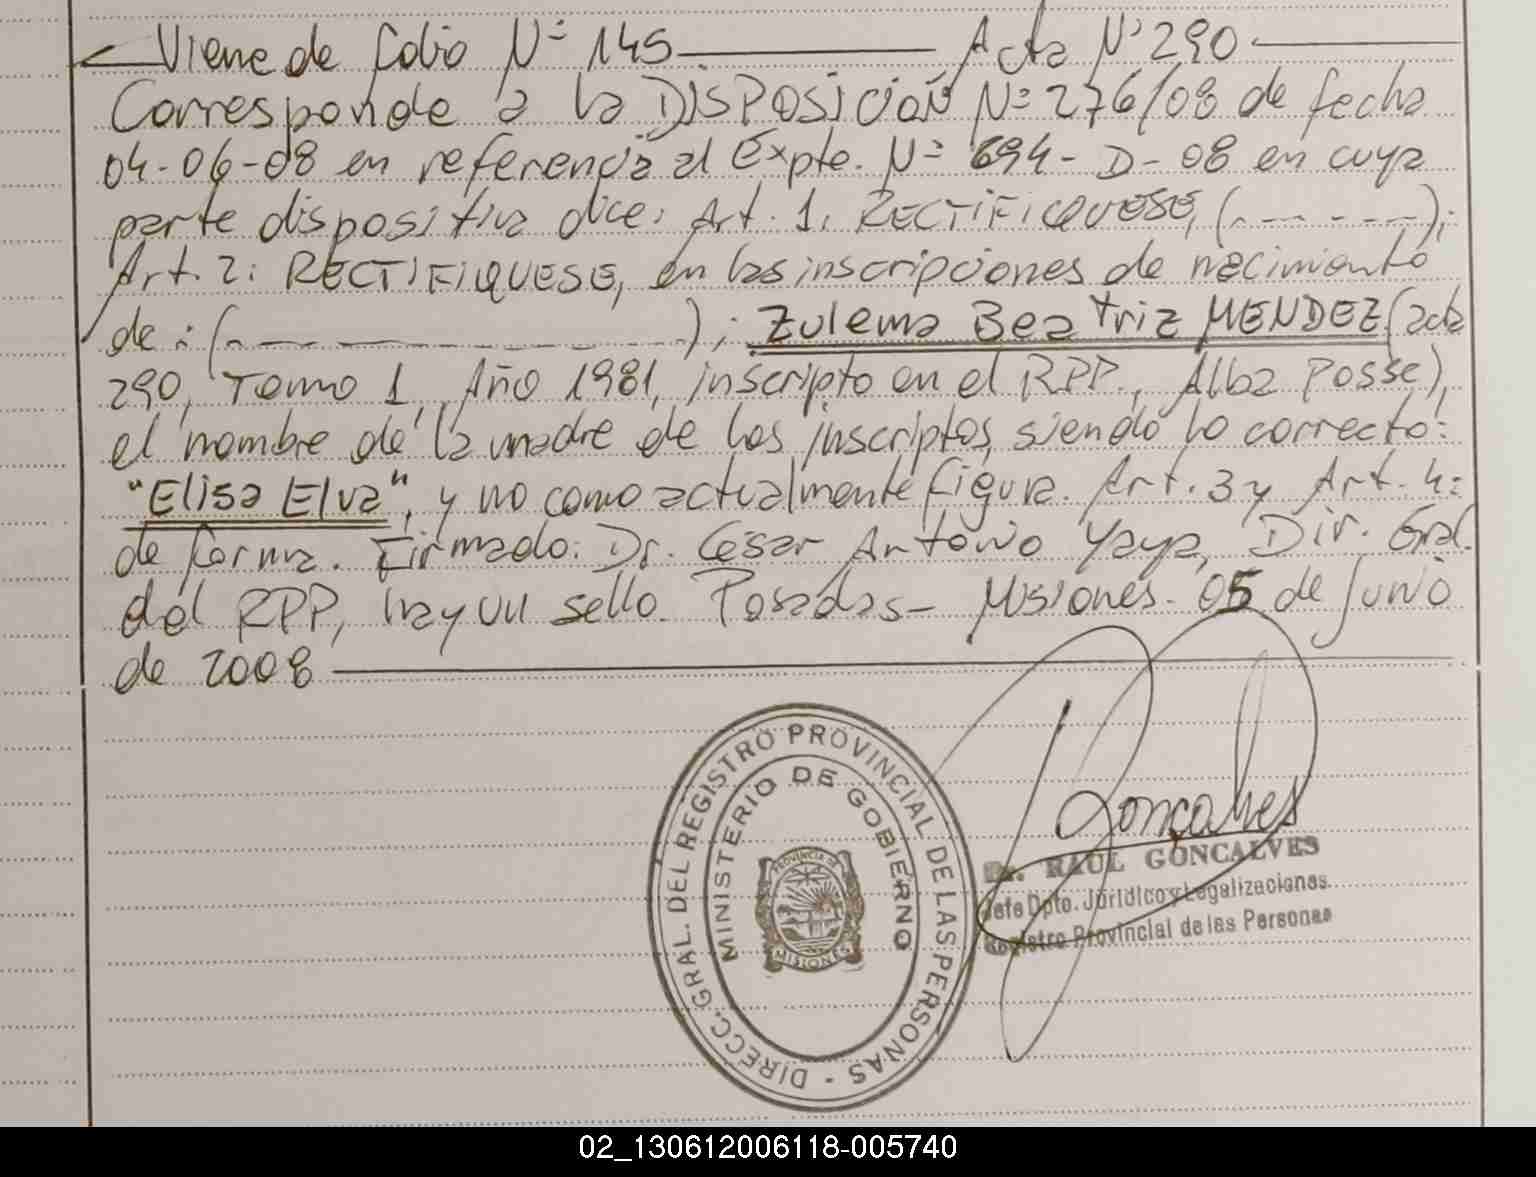 Viene de folio Nº 145 ———— Acta Nº 290 ————
Corresponde a la DISPOSICIÓN Nº 276/08 de fecha
04-06-08 en referencia al Expte. Nº 694-D-08 en cuya
parte dispositiva dice: Art. 1: RECTIFIQUESE, (- - - - - -);
Art. 2: RECTIFIQUESE, en las inscripciones de nacimiento
de: (- - - - - - - - - -); Zulema Beatriz MENDEZ (acta
290, Tomo 1, Año 1981, inscripto en el RPP., Alba Posse),
el nombre de la madre de los inscriptos, siendo lo correcto:
"Elisa Elva", y no como actualmente figura. Art. 3 y Art. 4:
de forma. Firmado: Dr. César Antonio Yaya, Dir. Gral.
del RPP, hay un sello. Posadas - Misiones. 05 de Junio
de 2008 ————
DIRECC. GRAL. DEL REGISTRO PROVINCIAL DE LAS PERSONAS -
MINISTERIO DE GOBIERNO
PROVINCIA DE
MISIONES
Goncalves
Dr. RAUL GONCALVES
Jefe Dpto. Jurídico y Legalizaciones
Registro Provincial de las Personas
02_130612006118-005740